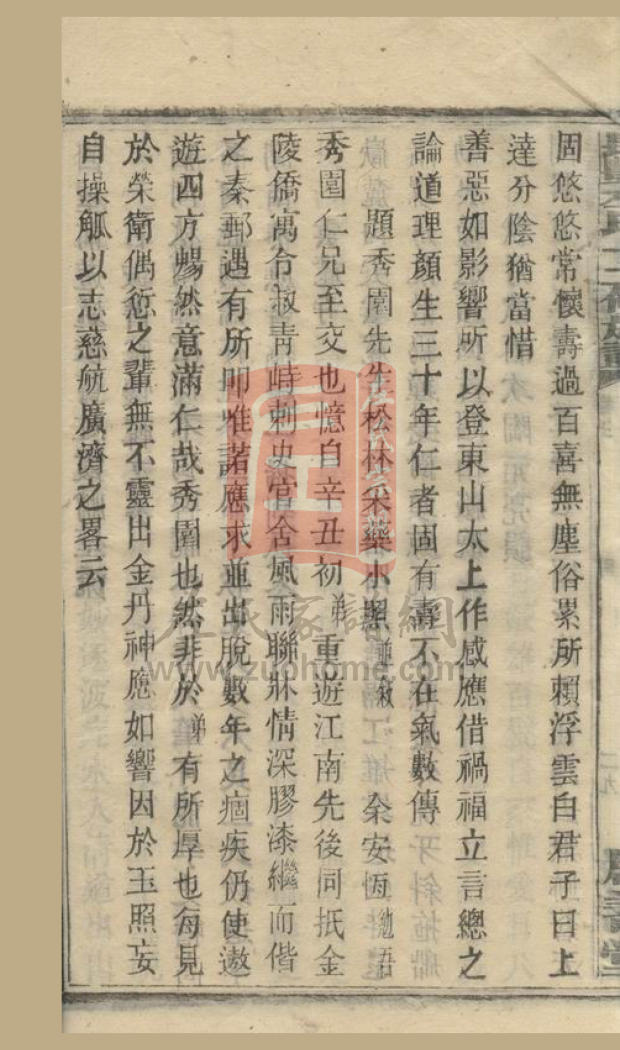 固悠悠常懷壽過百喜無塵俗累所賴浮雲白君子曰上
達分陰猶當惜
善惡如影響所以登東山太上作感應借禍福立言總之
論道理顏生三十年仁者固有壽不在氣數傳
題秀園先生松林采藥小照並敘 余安恆勉吾
秀園仁兄至交也憶自辛丑初弟重遊江南先後同抵金
陵僑寓令叔青峙刺史官舍風雨聯牀情深膠漆繼而偕
之秦郵遇有所叩唯諾應求並出脫數年之痼疾仍使遨
遊四方暢然意滿仁哉秀園也然非於弟有所厚也每見
於榮衛偶愆之輩無不靈出金丹神應如響因於玉照妄
自操觚以志慈航廣濟之畧云
左氏家譜網
www.zuohome.com